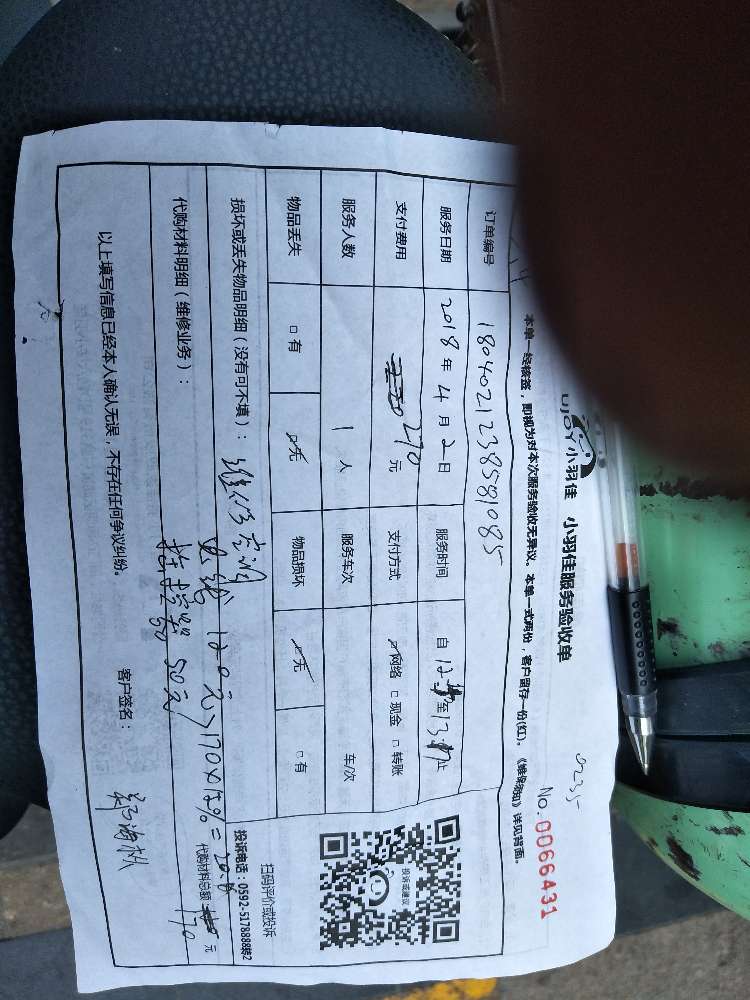 UJOY小羽佳 小羽佳服务验收单
9235
No. 0066431
本单一经核签，即视为对本次服务验收无异议。本单一式两份，客户留存一份(红)。《维保须知》详见背面。
订单编号 180402123858 1085
服务日期 2018年4月2日 服务时间 自 至13: 止
支付费用 270元 支付方式 ☑网络 □现金 □转账
服务人数 1人 服务车次 车/次
物品丢失 □有 ☑无 物品损坏 ☑无 □有
损坏或丢失物品明细（没有可不填）： 维修空调
120元 >170×12%=20.4
代购材料明细（维修业务）： 50元
代购材料总额: 170元
以上填写信息已经本人确认无误，不存在任何争议纠纷。
客户签名：
投诉或建议
扫码评价或投诉
投诉电话：0592-5178888转2